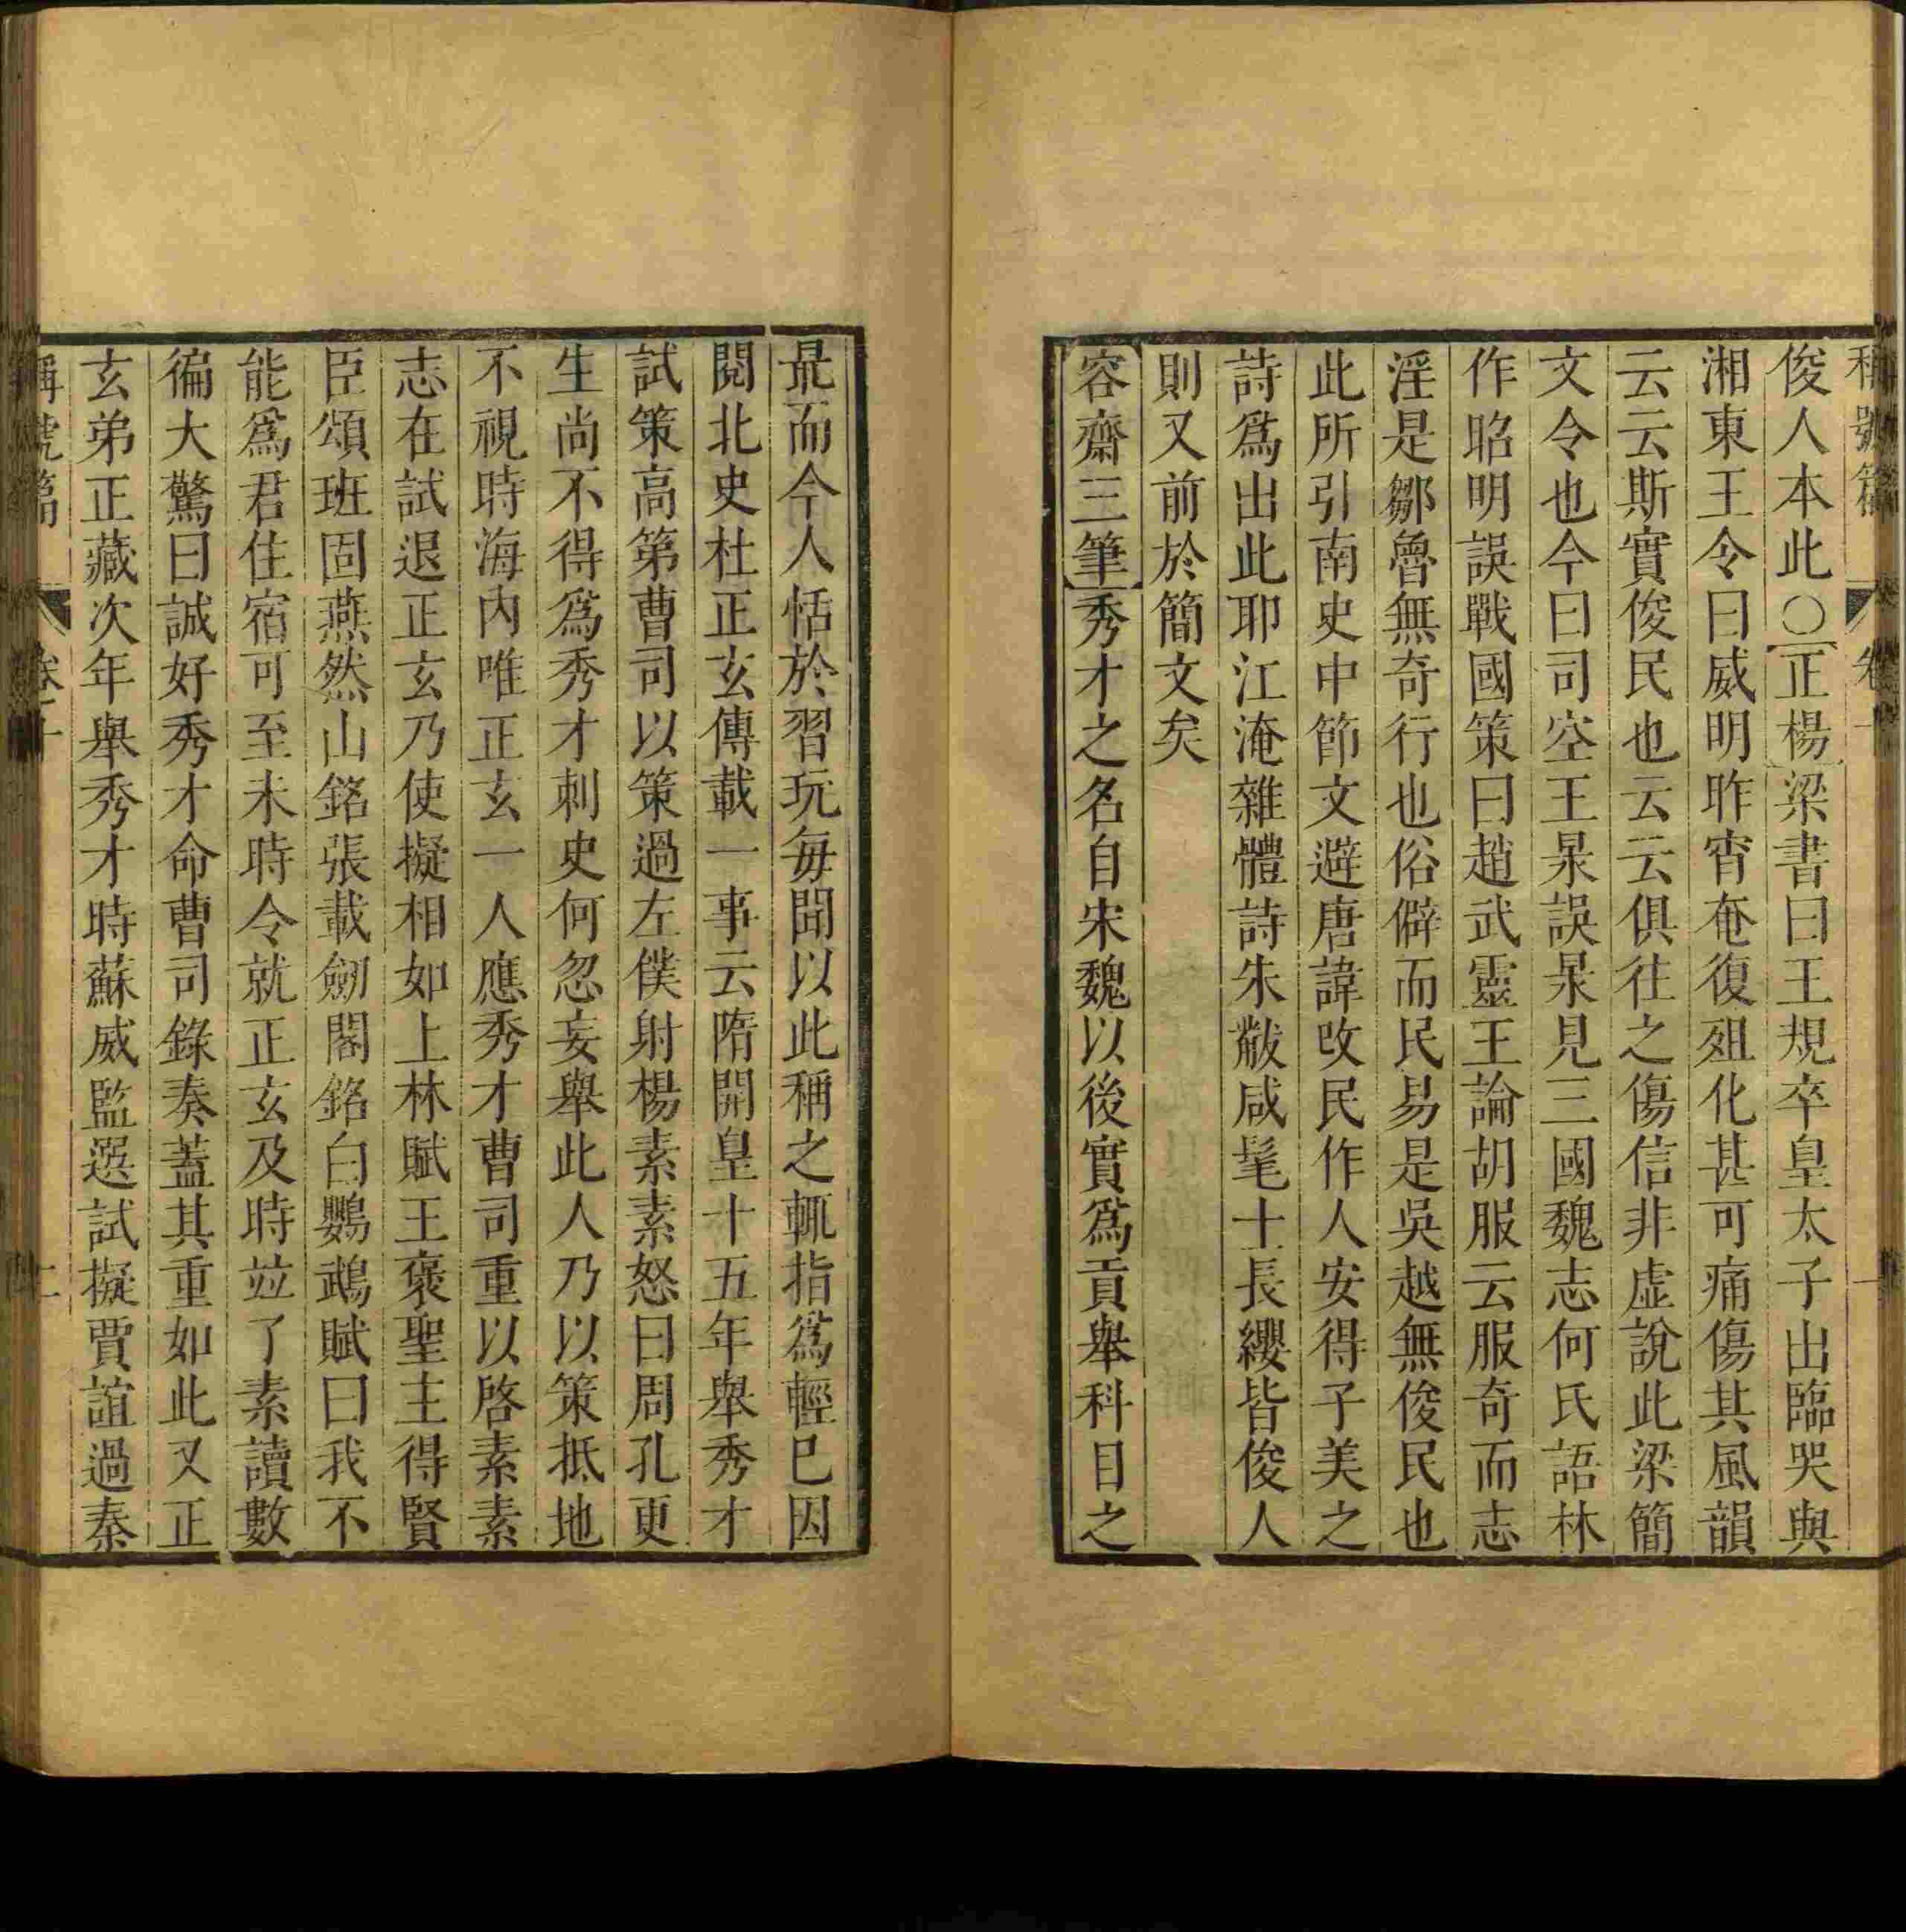 稱號篇 卷十 一
俊人本此○正楊梁書曰王規卒皇太子出臨哭與
湘東王令曰威明昨宵奄復殂化甚可痛傷其風韻
云云斯實俊民也云云俱往之傷信非虛說此梁簡
文令也今曰司空王杲誤杲見三國魏志何氏語林
作昭明誤戰國策曰趙武靈王論胡服云服奇而志
淫是鄒魯無奇行也俗僻而民易是吳越無俊民也
此所引南史中節文避唐諱改民作人安得子美之
詩為出此耶江淹雜體詩朱黻咸髦士長纓皆俊人
則又前於簡文矣
容齋三筆秀才之名自宋魏以後實為貢舉科目之
最而今人恬於習玩每聞以此稱之輒指為輕已因
閱北史杜正玄傳載一事云隋開皇十五年舉秀才
試策高第曹司以策過左僕射楊素素怒曰周孔更
生尚不得為秀才刺史何忽妄舉此人乃以策抵地
不視時海內唯正玄一人應秀才曹司重以啓素素
志在試退正玄乃使擬相如上林賦王褒聖主得賢
臣頌班固燕然山銘張載劒閣銘白鸚鵡賦曰我不
能為君住宿可至未時令就正玄及時竝了素讀數
徧大驚曰誠好秀才命曹司錄奏蓋其重如此又正
玄弟正藏次年舉秀才時蘇威監選試擬賈誼過秦
稱號篇 卷十 二